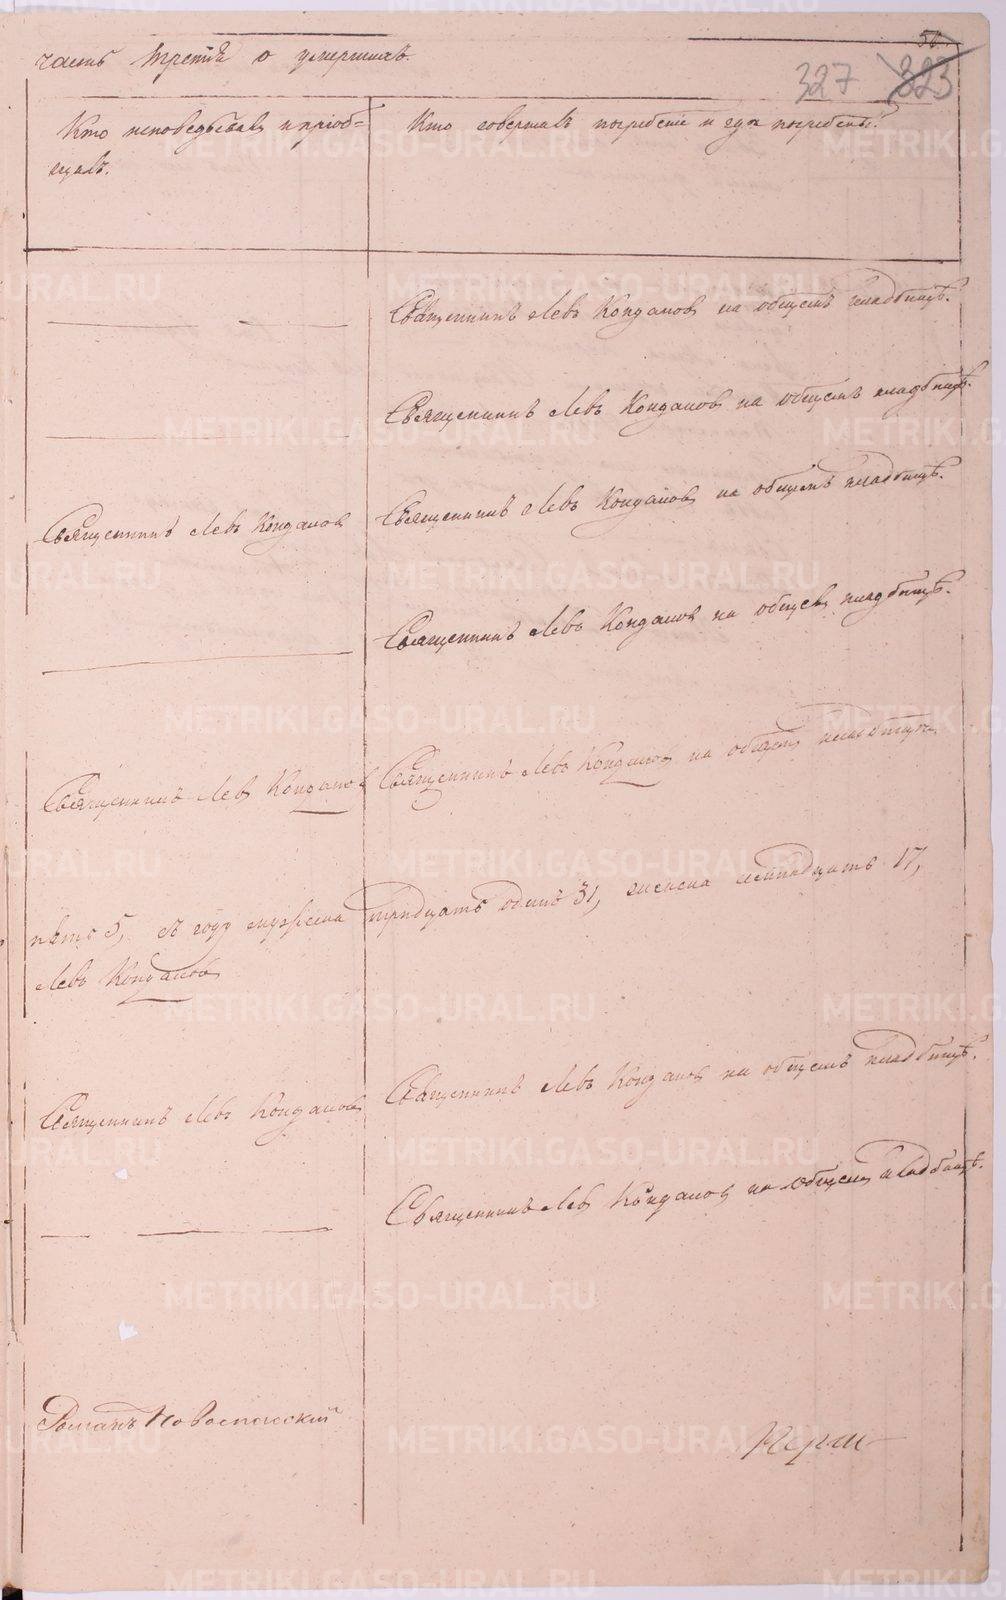 часть третiя о умершихъ.
50.
327 323
Кто исповедывалъ и прiоб-
щалъ.
Кто совершалъ погребенiе и где погребены.
Священникъ Левъ Кондаковъ на общемъ кладбищѣ.
Священникъ Левъ Кондаковъ на общемъ кладбищѣ.
Священникъ Левъ Кондаковъ
Священникъ Левъ Кондаковъ на общемъ кладбищѣ.
Священникъ Левъ Кондаковъ на общемъ кладбищѣ.
Священникъ Левъ Кондаковъ
Священникъ Левъ Кондаковъ на общемъ кладбищѣ.
пять 5, въ году мужеска тридцать одинъ 31, женска семнадцать 17,
Левъ Кондаковъ
Священникъ Левъ Кондаковъ
Священникъ Левъ Кондаковъ на общемъ кладбищѣ.
Священникъ Левъ Кондаковъ на общемъ кладбищѣ.
Романъ Новоспасский
METRIKI.GASO-URAL.RU